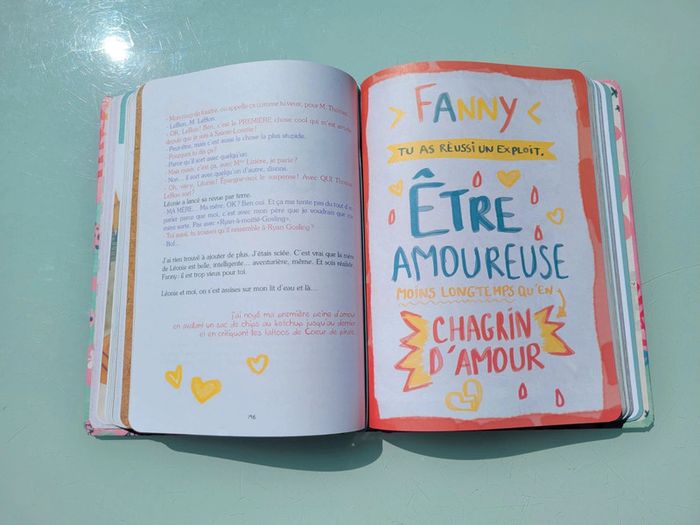 - Mon coup de foudre, ou appelle ça comme tu veux, pour M. Thomas...
- Leflon. M. Leflon.
- OK, Leflon! Ben, c'est la PREMIÈRE chose cool qui m'est arrivée
depuis que je suis à Sainte-Lorette!
- Peut-être, mais c'est aussi la chose la plus stupide.
- Pourquoi tu dis ça?
- Parce qu'il sort avec quelqu'un.
- Mais ouais, c'est ça, avec Mme Lisière, je parie?
- Non... Il sort avec quelqu'un d'autre, disons.
- Oh, wey, Léonie! Épargne-moi le suspense! Avec QUI Thomas
Leflon sort?
Léonie a lancé sa revue par terre.
- MA MÈRE... Ma mère, OK? Ben oui. Et ça me tente pas du tout d'en
parler parce que moi, c'est avec mon père que je voudrais que ma
mère sorte. Pas avec «Ryan-à-moitié-Gosling».
- Toi aussi, tu trouves qu'il ressemble à Ryan Gosling?
- Bof...
J'ai rien trouvé à ajouter de plus. J'étais sciée. C'est vrai que la mère
de Léonie est belle, intelligente... aventurière, même. Et sois réaliste,
Fanny: il est trop vieux pour toi.
Léonie et moi, on s'est assises sur mon lit d'eau et là...
j'ai noyé ma première peine d'amour
en avalant un sac de chips au ketchup jusqu'au dernier
et en critiquant les tattoos de Coeur de pirate.
196
FANNY
TU AS RÉUSSI UN EXPLOIT,
ÊTRE
AMOUREUSE
MOINS LONGTEMPS QU'EN
CHAGRIN
D'AMOUR